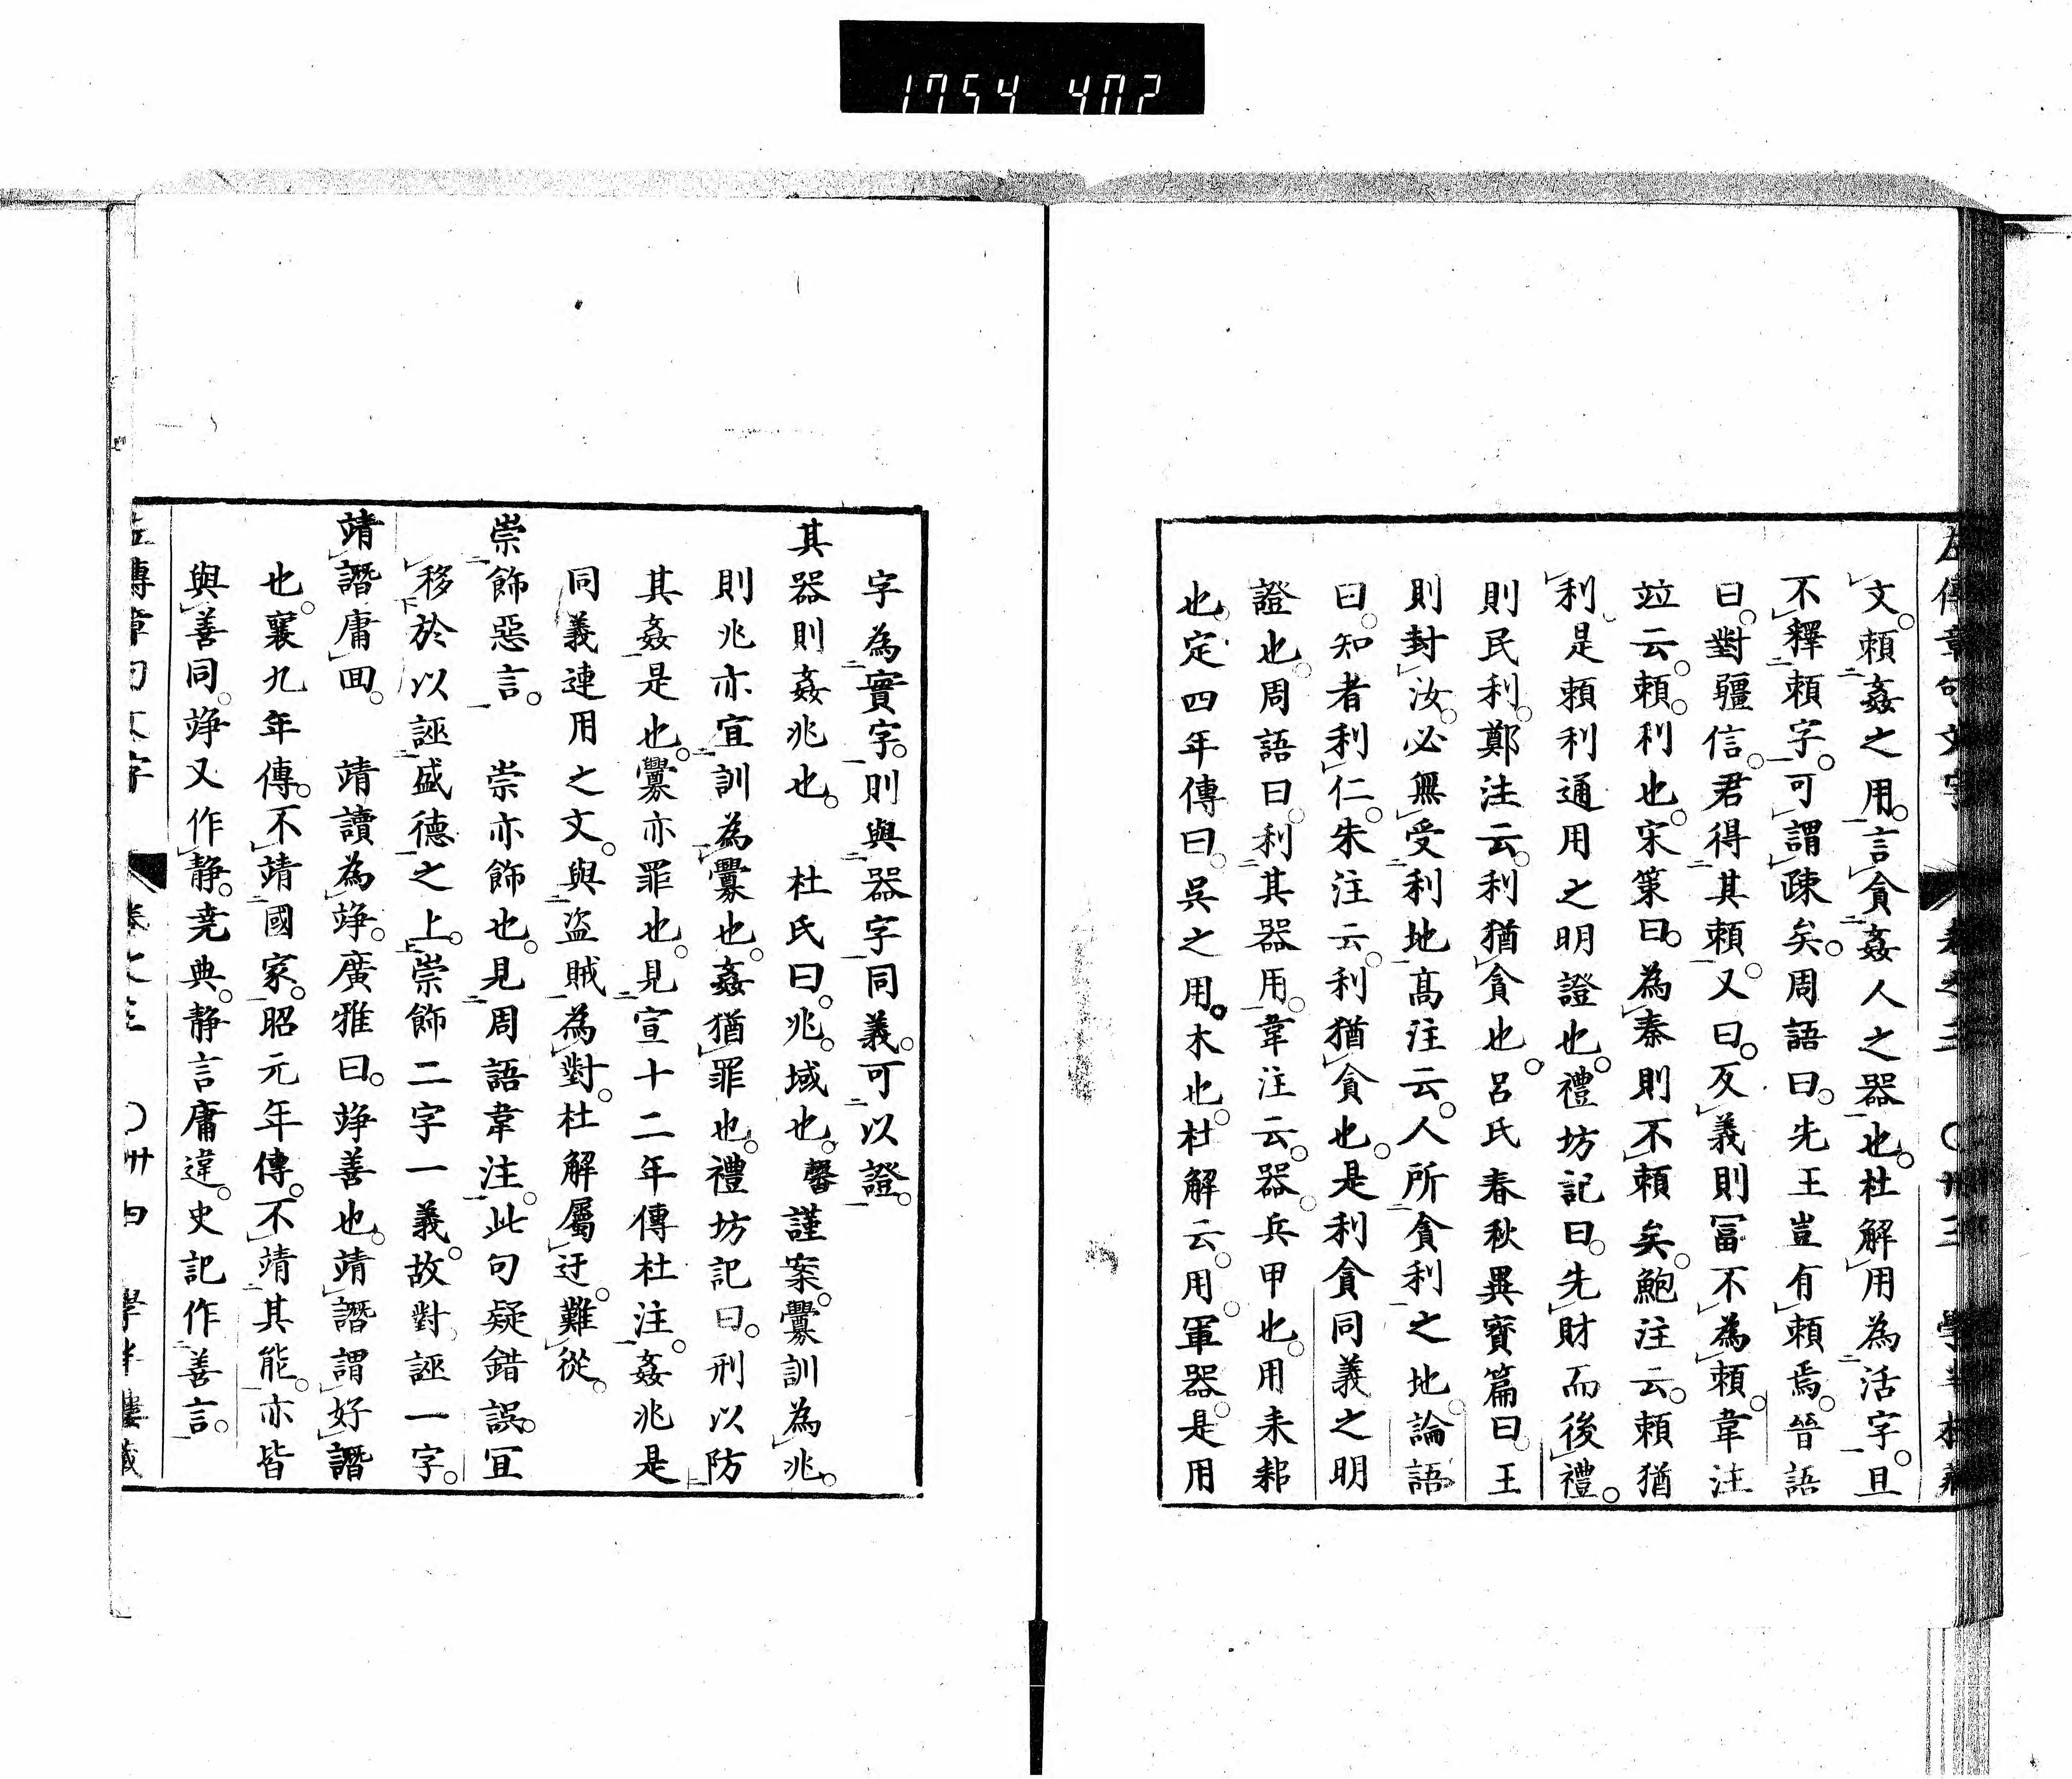 1754 402
左傳章句文字 卷之三 〇卅三 學半樓藏
文。賴姦之用。言貪姦人之器也。杜解用為活字。且
不釋賴字。可謂疎矣。周語曰。先王豈有賴焉。晉語
曰。對疆信。君得其賴。又曰。反義則冨不為賴。韋注
竝云。賴。利也。宋策曰。為秦則不賴矣。鮑注云。賴猶
利。是賴利通用之明證也。禮坊記曰。先財而後禮。
則民利。鄭注云。利猶貪也。呂氏春秋異寶篇曰。王
則封汝。必無受利地。高注云。人所貪利之地。論語
曰。知者利仁。朱注云。利猶貪也。是利貪同義之明
證也。周語曰。利其器用。韋注云。器。兵甲也。用耒耜
也。定四年傳曰。吳之用。木也。杜解云。用。軍器。是用
字為實字。則與器字同義。可以證。
其器則姦兆也。 杜氏曰。兆。域也。馨謹案。釁訓為兆。
則兆亦宜訓為釁也。姦猶罪也。禮坊記曰。刑以防
其姦是也。釁亦罪也。見宣十二年傳杜注。姦兆是
同義連用之文。與盗賊為對。杜解屬迂。難從。
崇飾惡言。 崇亦飾也。見周語韋注。此句疑錯誤。宜
移於以誣盛德之上。崇飾二字一義。故對誣一字。
靖譖庸回。 靖讀為竫。廣雅曰。竫善也。靖譖謂好譖
也。襄九年傳。不靖國家。昭元年傳。不靖其能。亦皆
與善同。竫又作静。尭典。静言庸違。史記作善言。
左傳章句文字 卷之三 〇卅四 學半樓藏